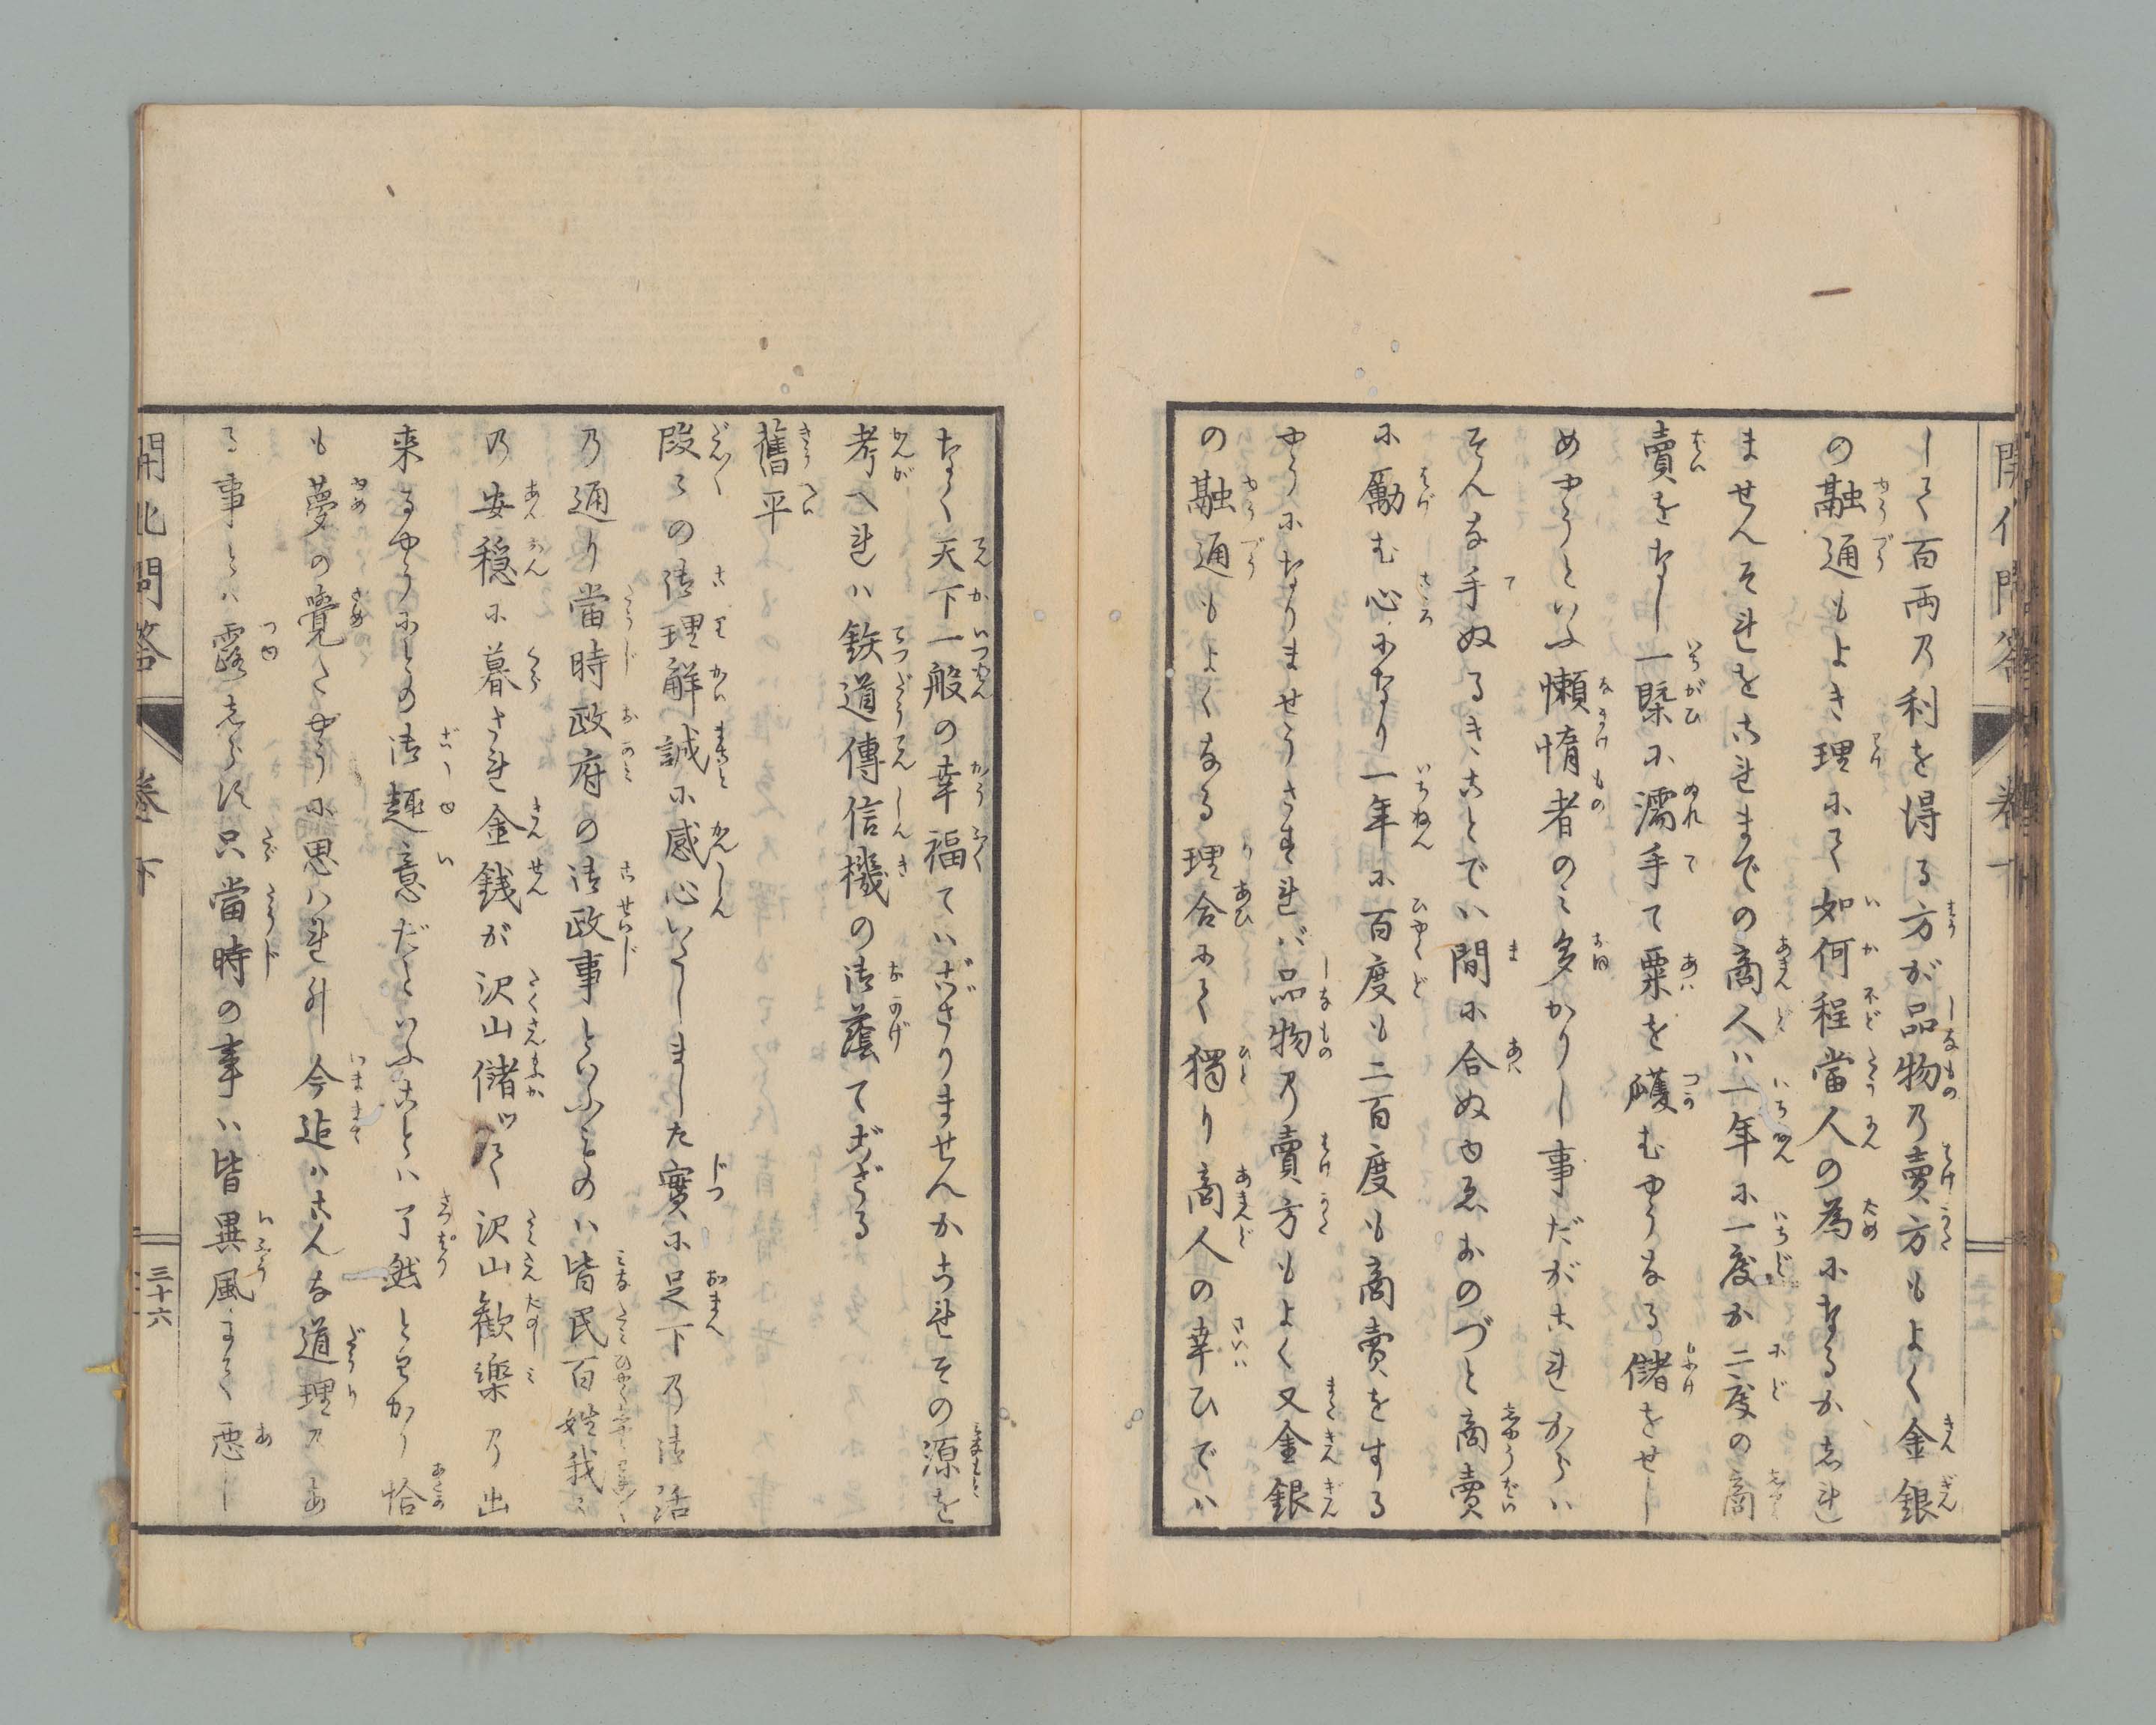 開化問答 卷下
して百両乃利を得る方が品物乃賣方もよく金銀
の融通もよき理にて如何程當人の為になるか志れ
ませんそれをこれまでの商人ハ一年に一度か二度の商
賣をなし一槩に濡手て粟を攫むやうなる儲をせし
めやうといふ懶惰者のミ多かりし事だがこれからハ
そんな手ぬるきことでハ間に合ぬゆゑおのづと商賣
に勵む心になり一年に百度も二百度も商賣をする
やうになりませうさすれバ品物乃賣方もよく又金銀
の融通もよくなる理合にて獨り商人の幸ひでハ
なく天下一般の幸福てハござりませんかこれその源を
考へれハ鉄道傳信機の御蔭てござる
舊平
段々の御理解誠に感心いたしました實に足下乃御話
乃通り當時政府の御政事といふものハ皆民百姓我々
乃安穏に暮され金銭が沢山儲ツて沢山歓樂乃出
来るやうにとの御趣意だといふことハ了然とわかり恰
も夢の覺たやうに思ハれ升今迠ハこんな道理乃あ
る事とハ露志らず只當時の事ハ皆異風にて悪し
開化問答 卷下 三十六